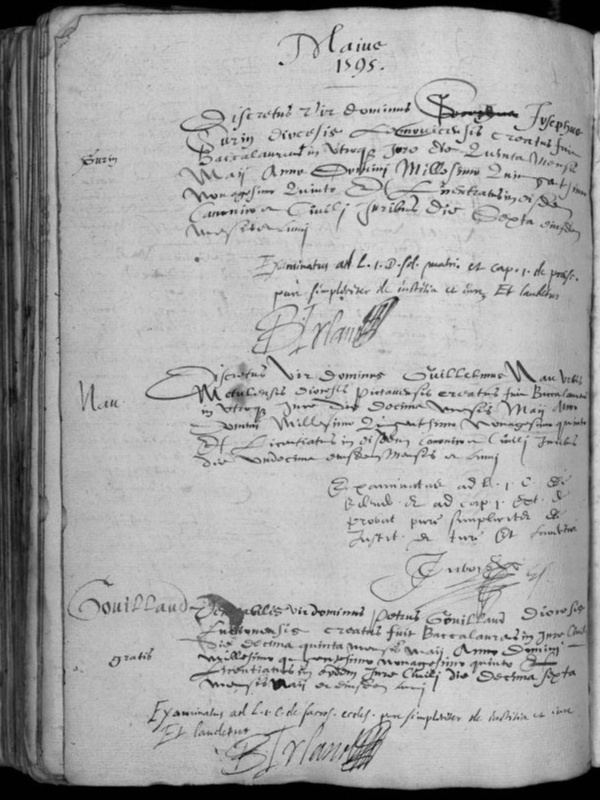 Maius
1595.
Discretus vir dominus Josephus
Surin diocesis Lemovicensis creatus fuit
Surin
Baccalaureus in utroq; Jure die Quinta mensis
Maii Anno Domini Millesimo Quingentesimo
nonagesimo Quinto Et Licentiatus in eisdem
Canonico et Civili Juribus die Sexta eiusdem
mensis et anni
Examinatus ad L. 1. D. sol. matri. et cap. 1. de
pure simpliciter de iustitia et iure Et laudetur
B Irland
Discretus Vir dominus Guillelmus Nau urbis
Nau
diocesis Pictavensis creatus fuit Baccalaureus
in utroq; Jure die decima mensis Maii Anno
Domini Millesimo Quingentesimo Nonagesimo quinto
Et Licentiatus in eisdem canonico et Civili Juribus
die undecima eiusdem Mensis et anni
Examinatus ad L. 1. C. de
et ad cap 1. ext. de
probat pure simpliciter de
Justit. et iure Et laudetur
Gouilland
Venerabilis vir dominus Petrus Gouilland diocesis
creatus fuit Baccalaureus in Jure Civili
die decima quinta mensis Maii Anno Domini
gratis
millesimo quingentesimo nonagesimo quinto
Licentiatus in eodem Jure Civili die decima sexta
mensis Maii et eiusdem anni
Examinatus ad L. 1. C. de sacros. eccles. pure simpliciter de iustitia et iure
Et laudetur
B Irland